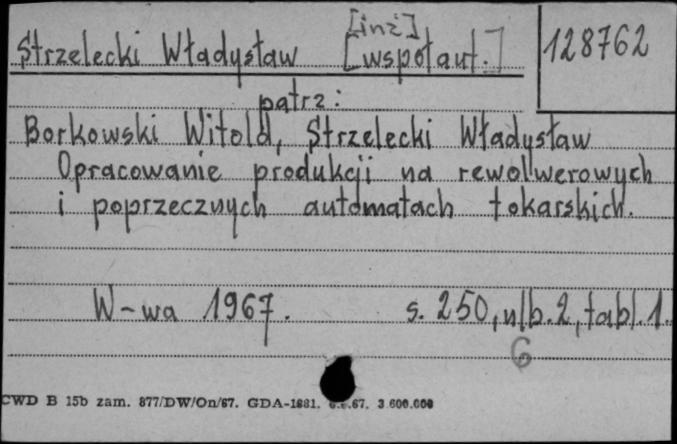 [inż]
Strzelecki Władysław [współaut.] 128762
patrz:
Borkowski Witold, Strzelecki Władysław
Opracowanie produkcji na rewolwerowych
i poprzecznych automatach tokarskich.
W-wa 1967. s. 250, nlb. 2, tabl. 1.
6
CWD B 15b zam. 877/DW/On/67. GDA-1681. 67. 3.600.000